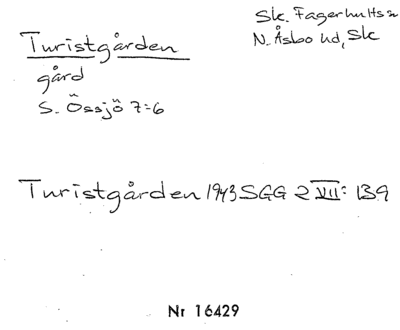 Turistgården
gård
S. Össjö 7:6
Sk. Fagerhults sn
N. Åsbo hd, Sk
Turistgården 1943 SGG 2 VII: 139
Nr 16429